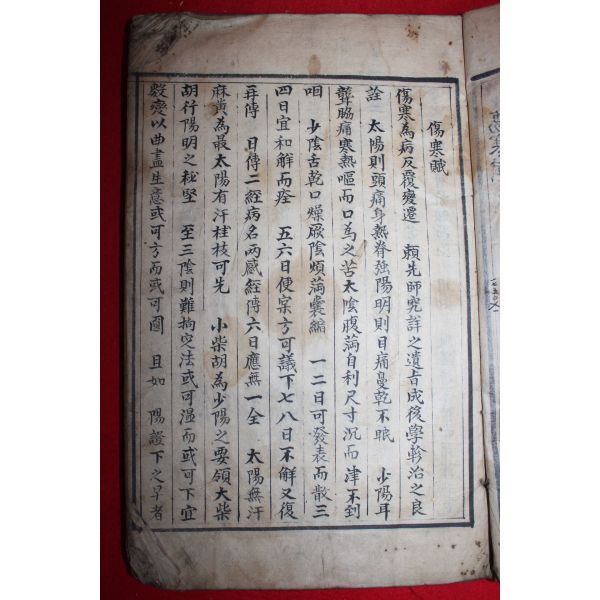 傷寒賦
傷寒為病反覆變遷　賴先師究詳之遺旨成後學診治之良
詮　太陽則頭痛身熱脊强陽明則目痛鼻乾不眠　少陽耳
聾脇痛寒熱嘔而口為之苦太陰腹滿自利尺寸沉而津不到
咽　少陰舌乾口燥厥陰煩滿囊縮　一二日可發表而散三
四日宜和解而痊　五六日便宲方可議下七八日不解又復
再傳　日傳二經病名兩感經傳六日應無一全　太陽無汗
麻黃為最太陽有汗桂枝可先　小柴胡為少陽之要領大柴
胡行陽明之秘堅　至三陰則難拘定法或可溫而或可下宜
數變以曲盡生意或可方而或可圓　且如　陽證下之早者